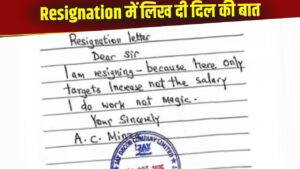 Resignation में लिख दी दिल की बात
Resignation letter
Dear Sir
I am resigning - because here only
targets Increase not the salary
I do work not magic.
Your Sincerely
A. C. Minz
JAY